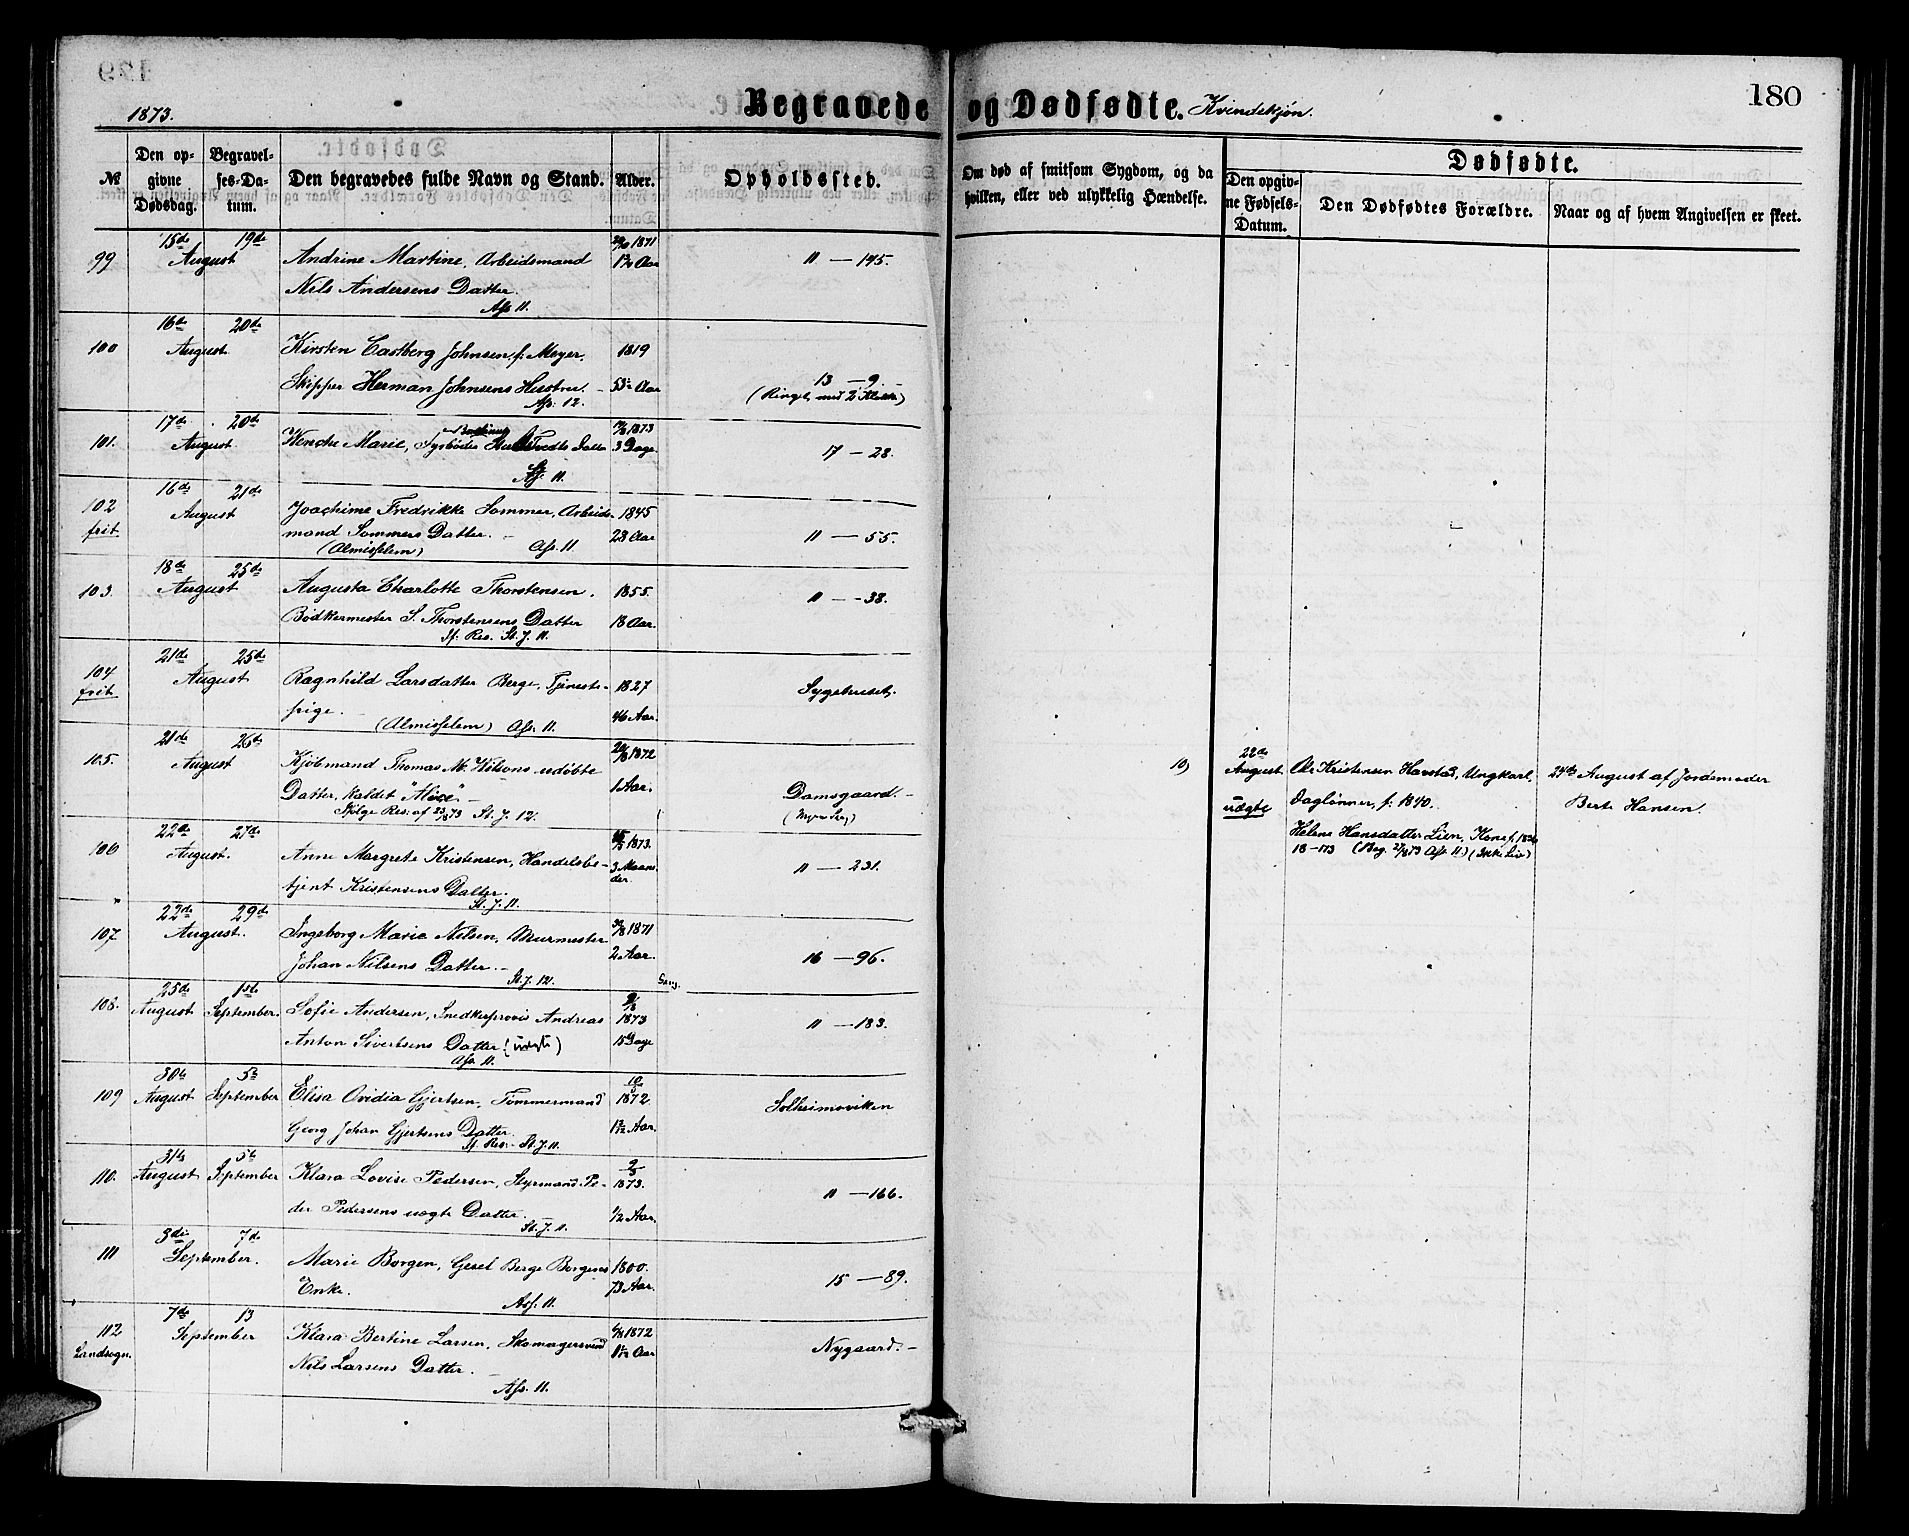 1873.
Begravede og Dødfødte. Kvindekjøn.
180
№
Den opgivne Dødsdag.
Begravelses-Datum.
Den begravedes fulde Navn og Stand.
Alder.
Opholdssted.
Om død af smitsom Sygdom, og da hvilken, eller ved ulykkelig Hændelse.
Dødfødte.
Den opgivne Fødsels-Datum.
Den Dødfødtes Forældre.
Naar og af hvem Angivelsen er skeet.
15de 19de 1871
99 August Andrine Martine, Arbeidsmand Aar 11 — 145.
Nils Andersens Datter.
Ass 11.
16de 20de
100 August Kirsten Castberg Johnsen, f. Meyer, 1819
Skipper Herman Johnsens Hustru. 53½ Aar 13 — 9 –
Ass. 12. (Ringet med 2 Klokker)
17de 20de 1873
101. August Wenche Marie, Datter 3 Dage 17 — 28.
11.
16de 21de
102 August Joachime Fredrikke Sommer, Arbeids- 1845
frit. mand Sommers Datter. – 28 Aar 11 — 55.
(Almisselem) Ass. 11
18de 25de
103. August Augusta Charlotte Thorstensen, 1855. 11 — 38.
Bødkermester S. Thorstensens Datter 18 Aar.
Sf. Res. St. J. 11.
21de 25de
104 August Ragnhild Larsdatter Berge, Tjeneste- 1827 Sygehuset.
frit. pige. 46 Aar.
(Almisselem) Ass. 11.
21de 26de 1872
105. August Kjøbmand Thomas M. Wilsons udøbte
Datter, kaldet "Alice" – 1 Aar. Damsgaard. –
Ifølge Res. af 23/8 73 St. J. 12.
22de 27de 1873.
106 August. Anne Margrete Kristensen, Handelsbe- 3 Maaneder. 11 — 231.
tjent Kristensens Datter.
St. J. 11.
22de 29de 1871
107 August. Ingeborg Marie Nilsen, Murmester
Johan Nilsens Datter. – 2 Aar. 16 — 96.
St. J. 12. Sang.
25de 1ste
108. August September. Sofie Andersen, Snedkersvend Andreas 1873 11 — 183.
Anton Sivertsens Datter (uægte) 15 Dage
Ass. 11.
30te 5te
109 August September Elisa Ovidia Gjertsen, Tømmermand 1872 Solheimsviken
Georg Johan Gjertsens Datter. Aar.
Sf. Res. St. J. 11.
31te 5te
110. August September Klara Lovise Pedersen, Styrmand Pe- 1873. 11 — 166.
der Pedersens uægte Datter. ½ Aar.
St. J. 11.
3die 7de
111 September. Marie Borgen, Gesel Berge Borgens 1800.
Enke. 73 Aar. 15 — 89.
Ass. 11.
7de 13
112 September Klara Bertine Larsen, Skomagersvend 1872 Nygaard. –
Landsogn. Nils Larsens Datter. Aar
Ass. 11.
10) 22de August Ole Kristensen Havstad, Ungkarl, 24de August af Jordemoder
uægte Dagløner, f. 1840. Berte Hansen.
Helene Hansdatter Lien, Kone
18 – 173 (Beg. 27/8 73 Ass. 11.)